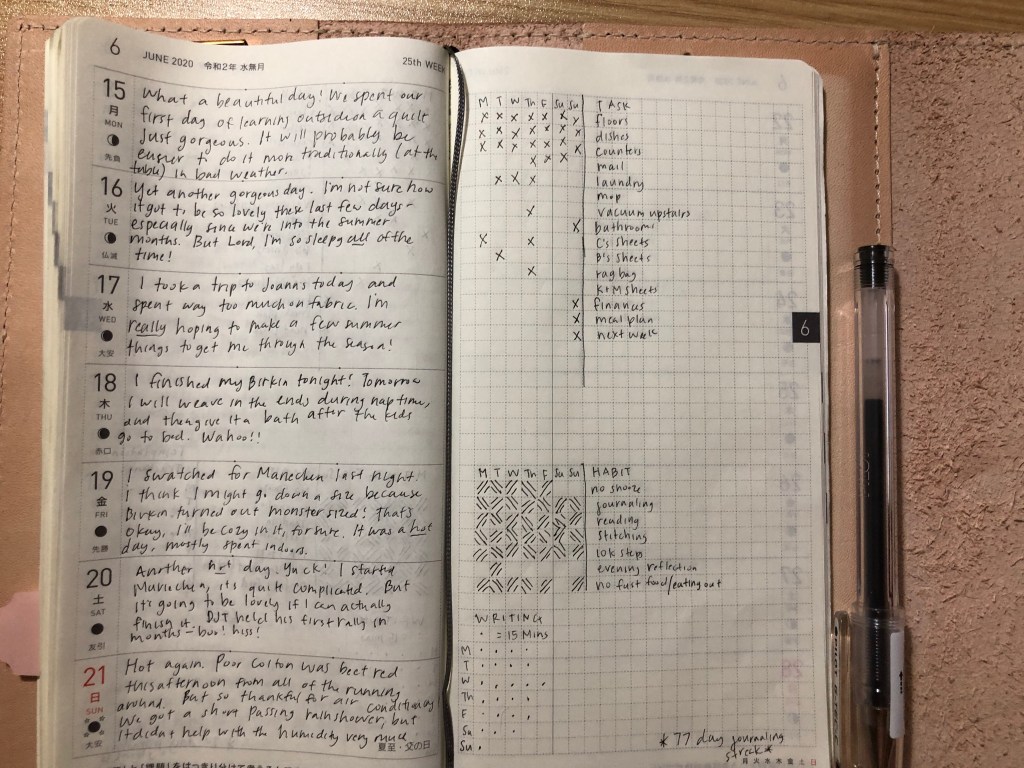 6 JUNE 2020 令和2年 水無月 25th WEEK
15 月 MON 先負
What a beautiful day! We spent our
first day of learning outside on a quilt
Just gorgeous. It will probably be
easier to do it more traditionally (at the
table) in bad weather.
16 火 TUE 仏滅
Yet another gorgeous day. I'm not sure how
it got to be so lovely these last few days-
especially since we're into the summer
months. But Lord, I'm so sleepy all of the
time!
17 水 WED 大安
I took a trip to Joanns today and
spent way too much on fabric. I'm
really hoping to make a few summer
things to get me through the season!
18 木 THU 赤口
I finished my Birkin tonight! Tomorrow
I will weave in the ends during nap time,
and then give it a bath after the kids
go to bed. Wahoo!!
19 金 FRI 先勝
I swatched for Manechen last night.
I think I might go down a size because
Birkin turned out monster sized! That's
okay, I'll be cozy in it, for sure. It was a hot
day, mostly spent indoors.
20 土 SAT 友引
Another hot day. Yuck! I started
it's quite complicated. But
it's going to be lovely if I can actually
finish it. DJT held his first rally in
months - boo! hiss!
21 日 SUN 大安
Hot again. Poor Colton was beet red
this afternoon from all of the running
around. But so thankful for air conditioning!
We got a short passing rain shower, but
it didn't help with the humidity very much
夏至・父の日
M T W Th F Sa Su TASK
X X X X X X X floors
X X X X X X X dishes
X X X X X X X counters
X X X mail
X X X laundry
mop
X vacuum upstairs
X bathrooms
X X C's sheets
X B's sheets
X rag bag
K+M sheets
X finances
X meal plan
X next week
6
M T W Th F Sa Su HABIT
no snooze
journaling
reading
stitching
10k step
evening reflection
no fast food/eating out
WRITING
· = 15 Mins
M
T
W
Th
F
Sa
Su
*77 day journaling
streak*
月火水木金土日